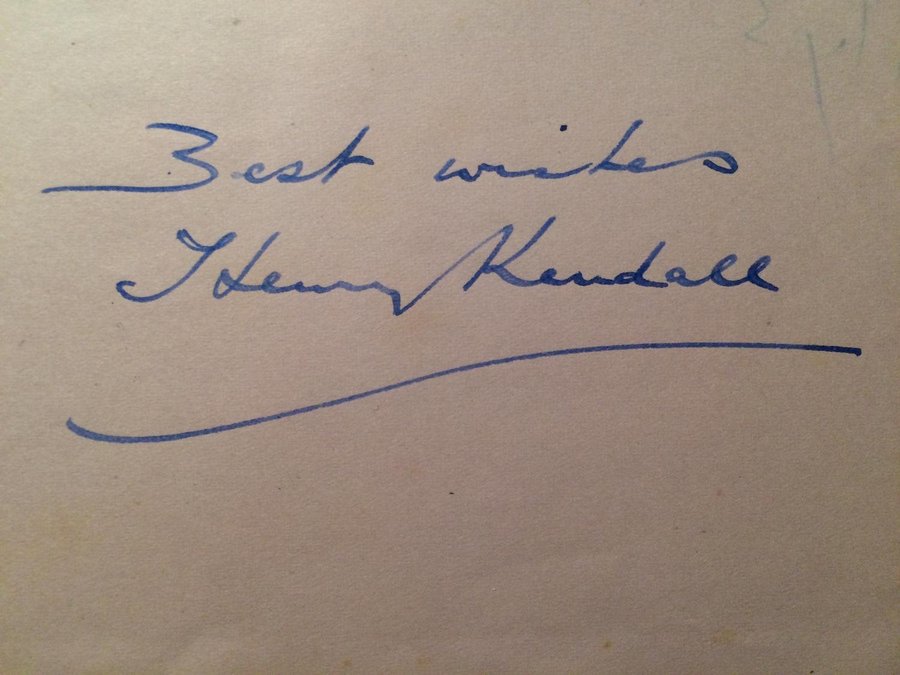 Best wishes
Henry Kendall